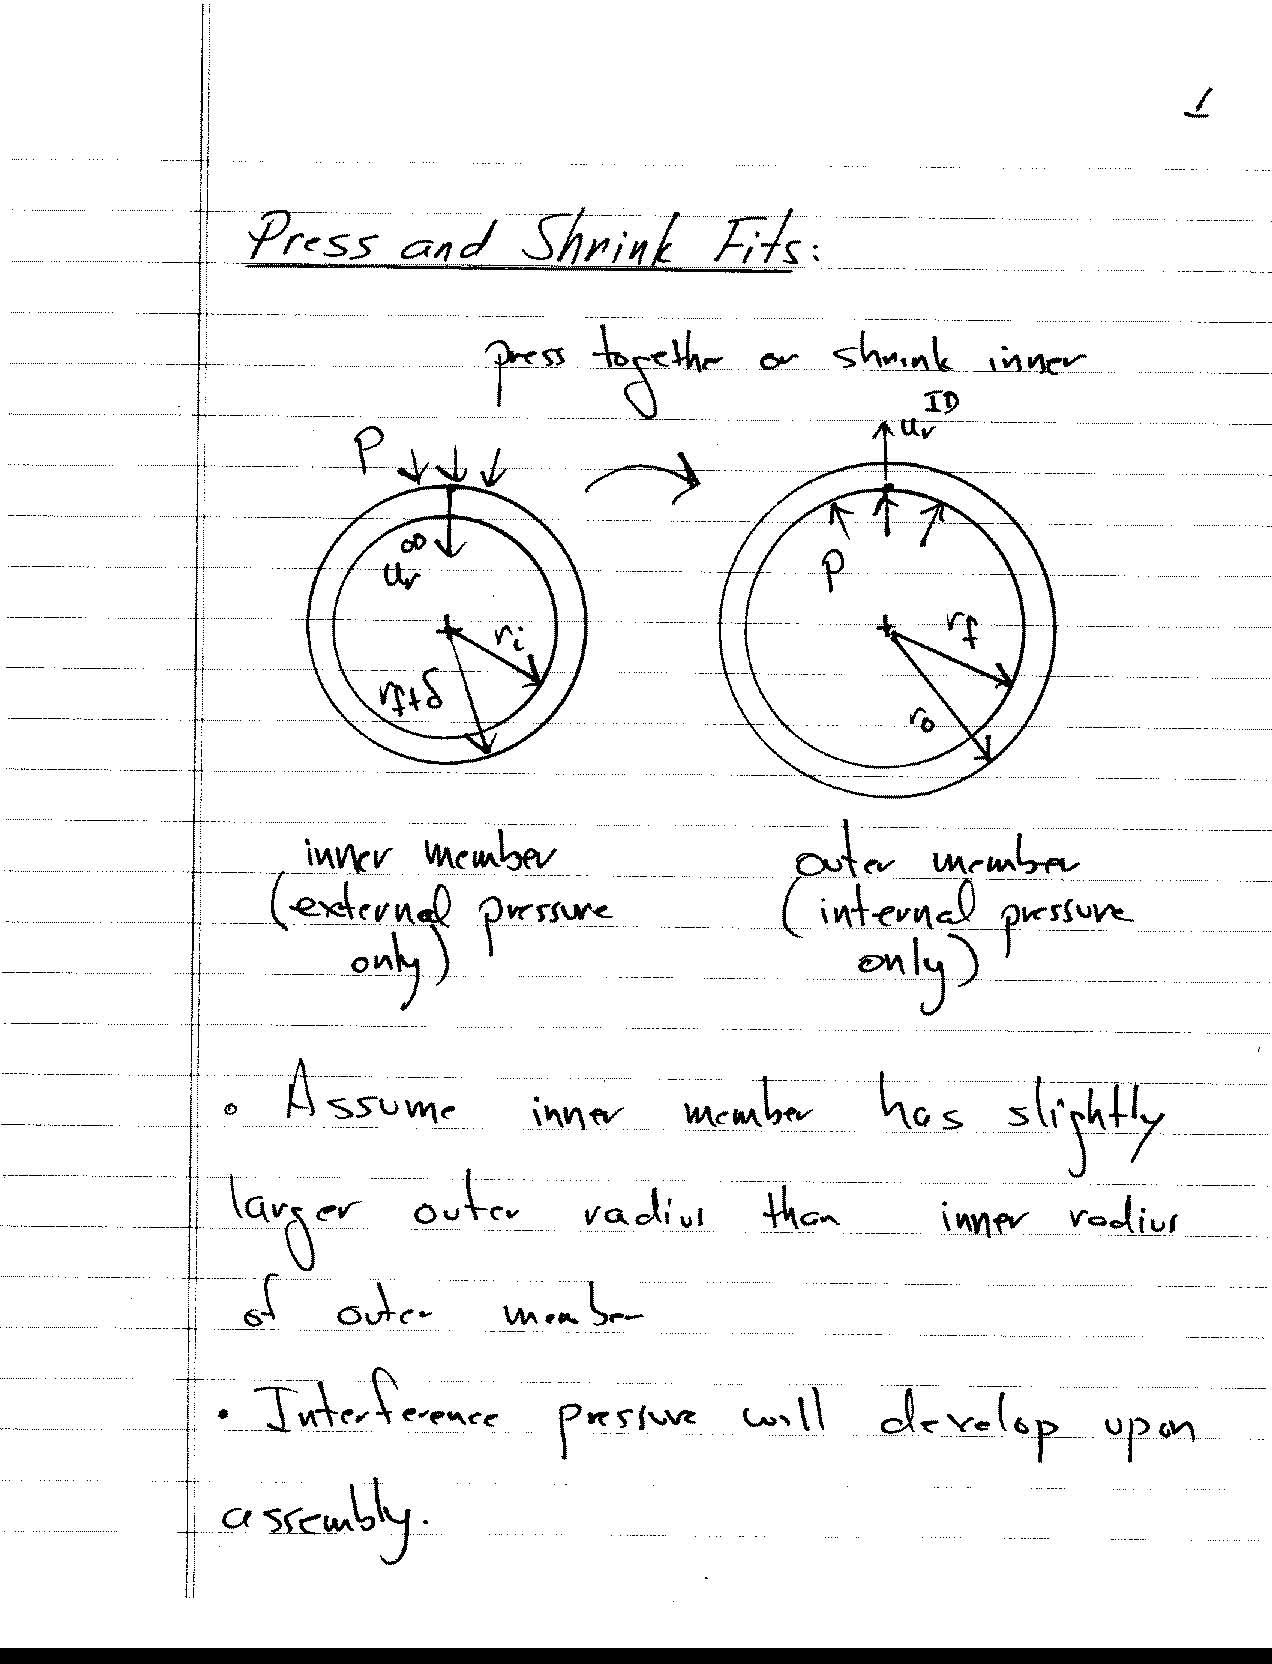 1
Press and Shrink Fits:
press together or shrink inner
P
u_r^{OD}
r_i
r_f+δ
u_r^{ID}
P
r_f
r_o
inner member
(external pressure
only)
outer member
(internal pressure
only)
• Assume inner member has slightly
larger outer radius than inner radius
of outer member
• Interference pressure will develop upon
assembly.